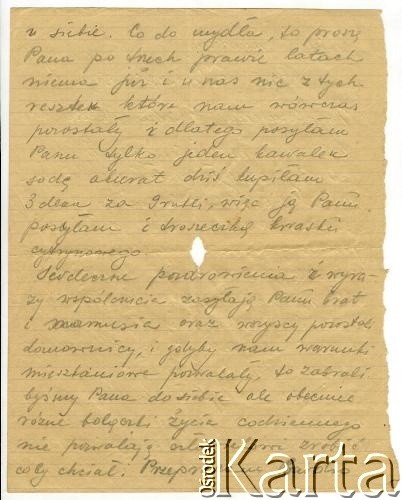 u siebie. Co do mydła, to proszę
Pana po trzech prawie latach
niema już i u nas nic z tych
resztek które nam wówczas
pozostały i dlatego posyłam
Panu tylko jeden kawałek
sodę akurat dziś kupiłam
3 deca za rubli, więc ją Panu
posyłam i troszeczkę kwasku
cytrynowego.
Serdeczne pozdrowienia i wyra-
zy współczucia zasyłają Panu brat
i mamusia oraz wszyscy pozostali
domownicy, i gdyby nam warunki
mieszkaniowe pozwalały, to zabrali
byśmy Pana do siebie ale obecnie
różne bolączki życia codziennego
nie pozwalają człowiekowi zrobić
coby chciał. Przepraszam bardzo
ośrodek
Karta